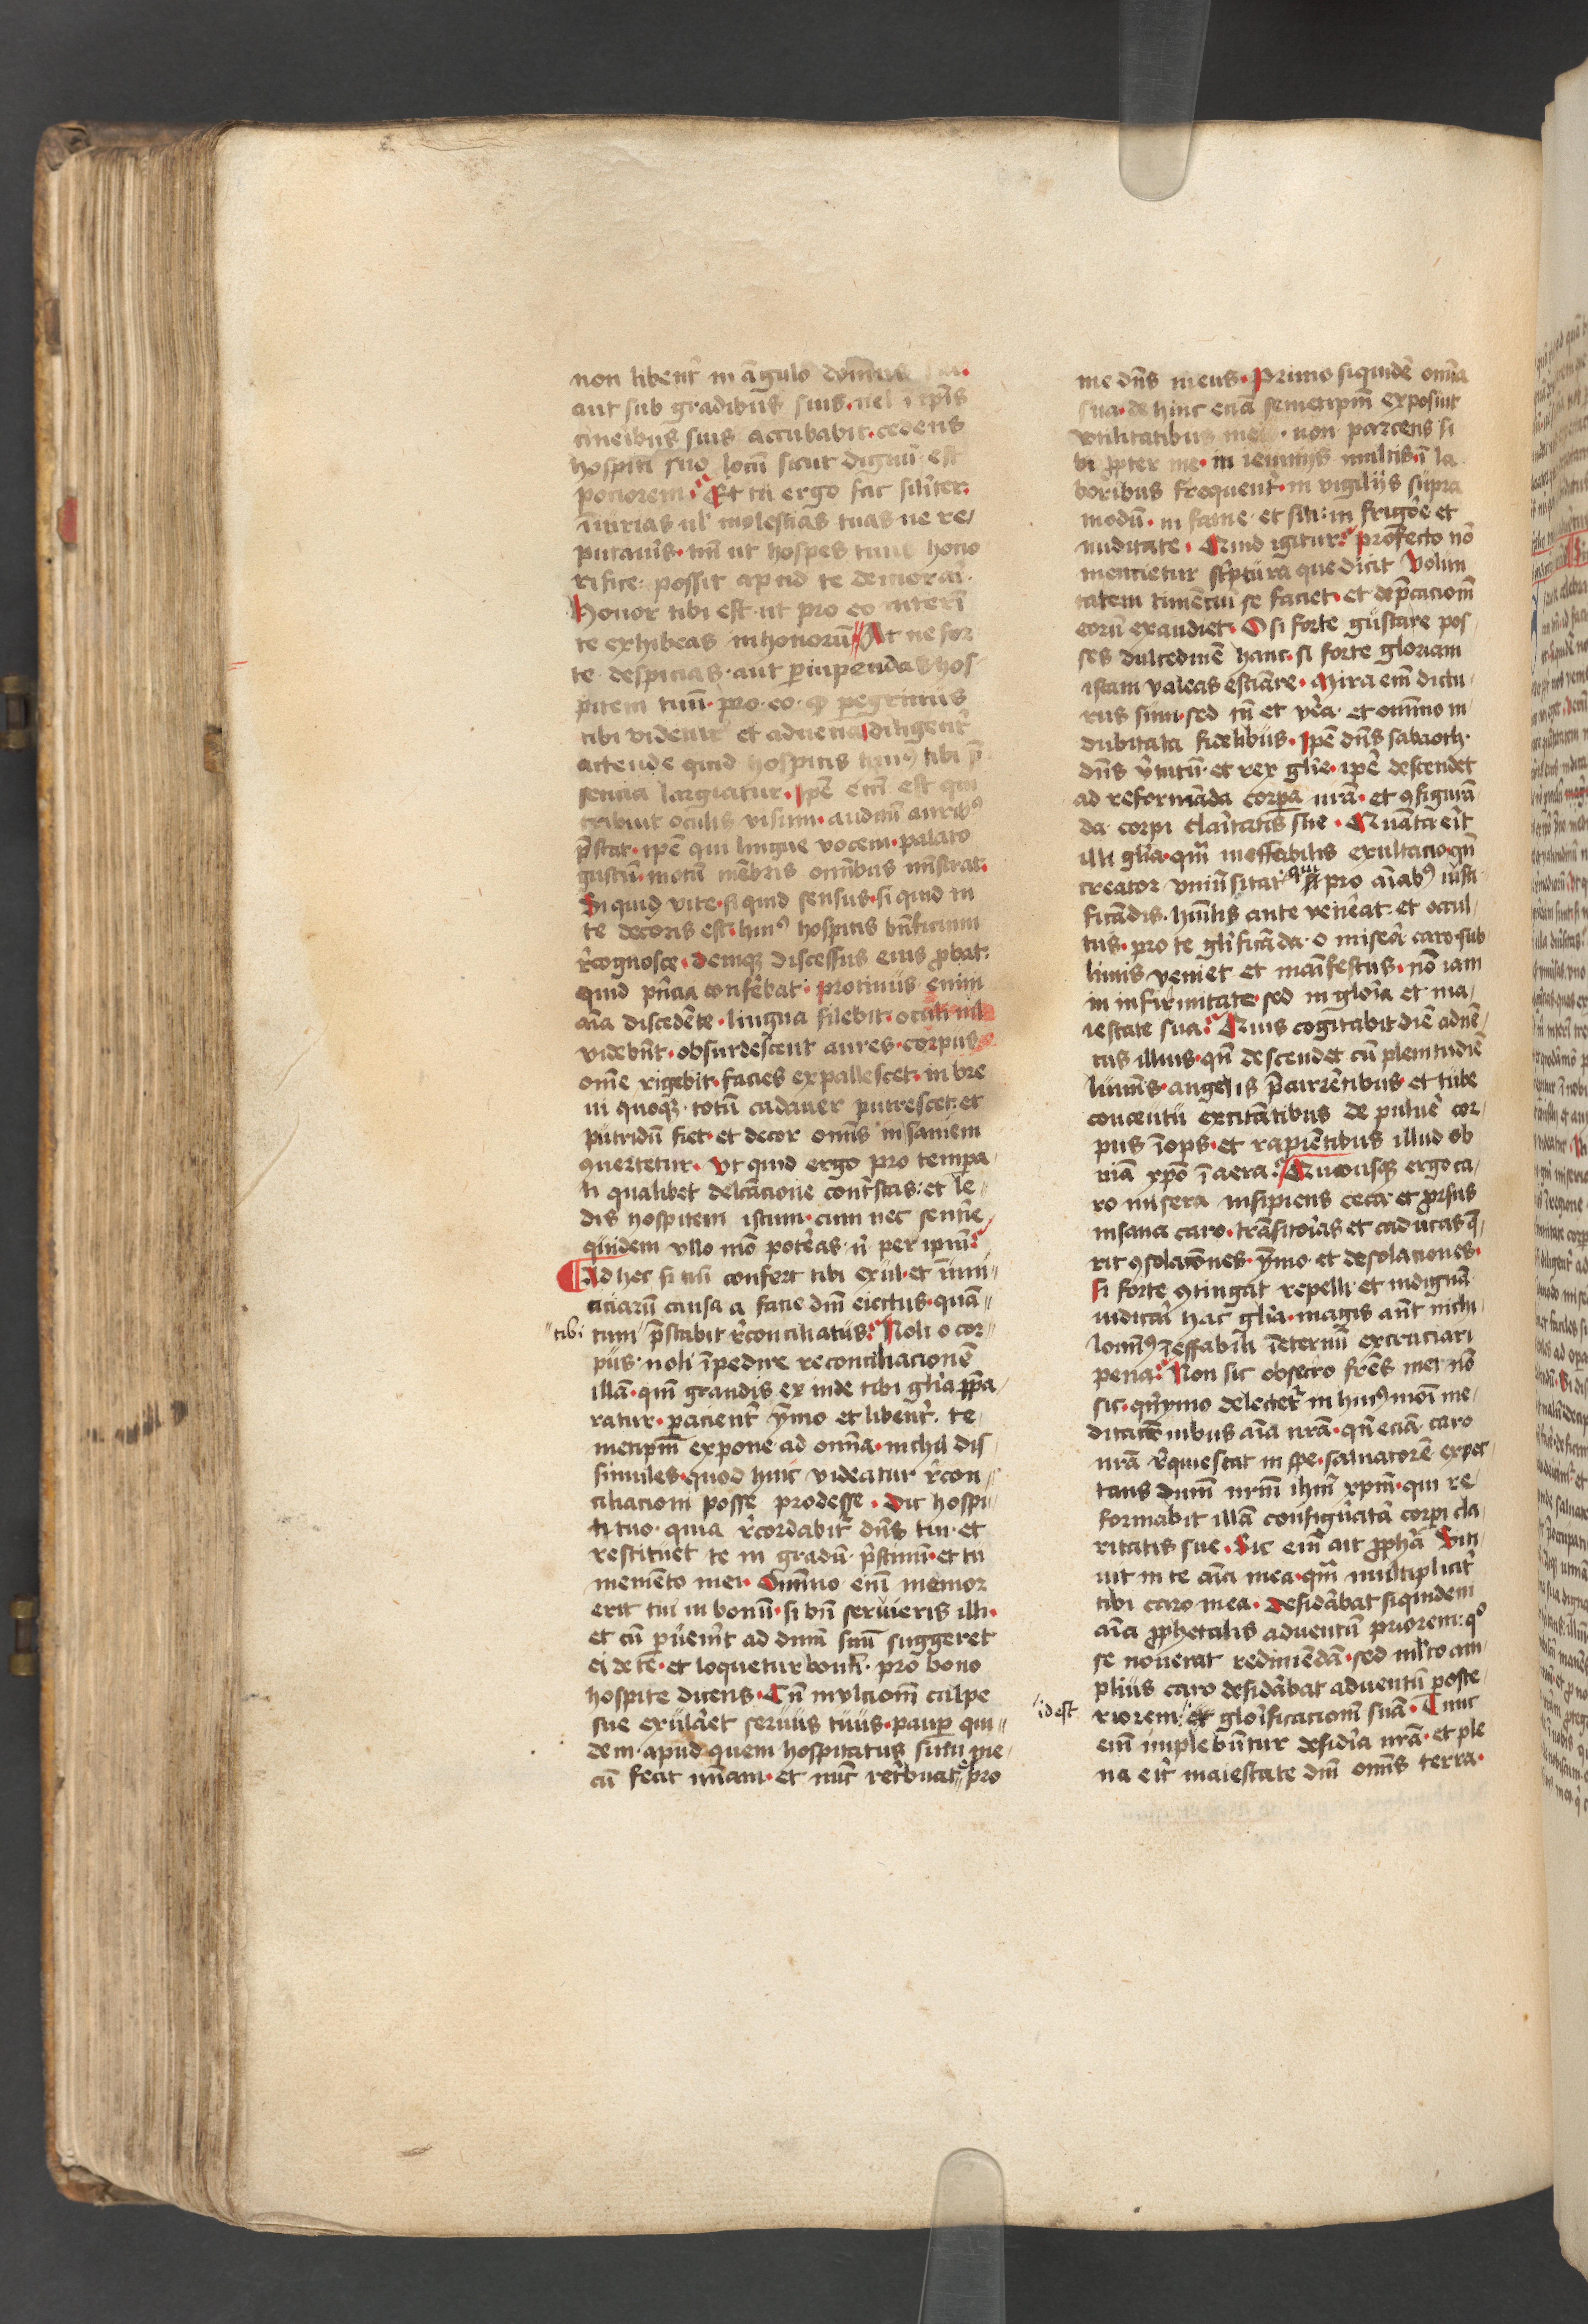 non libent̉ in āgulo domus sue.
aut sub gradibus suis. uel ī ip̄is
cineribus suis accubabit. cedens
hospiti suo locū sicut dignū est
pociorem. Et tu ergo fac silīter.
iniurias ul̄ molestias tuas ne re/
putaueris. tm̄ ut hospes tuus hono
rifice: possit apud te demorari.
Honor tibi est. ut pro eo interī
te exhibeas inhonorū At ne for
te despicias. aut ꝑuipendas hos-
pitem tuū. pro. eo. ꝙ ꝑegrinus
tibi videtur et aduena diligent̉
attende quid hospitis huiꝰ tibi p̄
sencia largiatur. Ip̄e em̄ est qui
tribuit oculis visum. auditū auribꝰ
p̄stat. ip̄e qui lingue vocem. palato
gustū. motū mēbris omībus mīstrat.
Si quid vite. si quid sensus. si quid in
te decoris est. huiꝰ hospitis bn̄ficium
r̄cognosce. Deniqꝫ discessus eius ꝓbat.
quid pn̄cia conferebat. Protinus enim
aīa discedēte. lingua silebit. oculi nil
videbūt. obsurdescent aures. corpus
ome rigebit. facies expallescet. in bre
ui quoqꝫ. totū cadauer putrescet. et
putridū fiet. et decor omīs in saniem
ꝯuertetur. Vt quid ergo pro tempa-
li qualibet delc̄acione contristas: et le-
dis hospitem istum. cum nec sentire
quidem vllo mō poteras. n̄ per ipm̄
Ad hec si tibi confert tibi exul. et inimi-
ciciarū causa a facie dn̄i eiectus. quā-
tibi tum p̄stabit r̄conciliatus Noli o cor-
pus. noli īpedire reconciliacionē
illā. qm̄ grandis ex inde tibi glīa p̄pa/
ratur. pacient̉ ymo et libent̉. te-
metipm̄ expone ad omīa. nichil dis-
simules. quod huic videatur r̄con-
ciliacioni posse prodesse. Dic hospi-
ti tuo. quia r̄cordabit̉ dn̄s tui. et
restituet te in gradū p̄stinū. et tu
memēto mei. Omnino enī memor
erit tui in bonū. si bn̄ seruieris illi.
et cū ꝑuenīt ad dnm̄ suū suggeret
ei de te. et loquetur bonū. pro bono
hospite dicens. Cū in vltionem culpe
sue exularet seruus tuus. pauꝑ qui-
dem. apud quem hospitatus sum me-
cū fecit mīam. et nunc retribuat pro
me dn̄s meus. Primo siquidē omīa
sua. de hinc eciā semetipm̄ exposuit
vtilitatibus meis. non parcens si
bi ꝓpter me. in ieiunijs multis ī la
boribus frequent̉. in vigilijs supra
modū. in fame. et siti: in frigore et
nuditate. Quid igitur. Profecto nō
mencietur sc̄ptura que dicit Volun
tatem timēciū se faciet. et dep̄cacionē
eorū exaudiet. O si forte gustare pos-
ses dulcedinē hanc. si forte gloriam
istam valeas estiāre. Mira em̄ dictu-
rus sum. sed tn̄ et vera. et omnino in
dubitata fidelibus. Ip̄e dn̄s sabaoth.
dn̄s v̄tutū. et rex glīe. ip̄e descendet
ad reformāda corpa nrā. et ꝯfigurā
da corpi claritatis sue. Quanta erit
illi glīa. qm̄ ineffabilis exultacio. qn̄
creator vniūsitatꝭ qui pro aīabꝰ iusti-
ficādis. hūilis ante vēerat. et occul-
tus. pro te glīficāda. o misera caro. sub
limis veniet et manīfestus. nō iam
in infirmitate. sed in gloīa et ma/
iestate sua Quis cogitabit diē aduē/
tus illius. qn̄ descendet cū plenitudīe
lumīs. angelis p̄currētibus et tube
concentu excitātibus de puluere cor-
pus īops. et rapiētibus illud ob
uiā xp̄o ī aera. Quousqꝫ ergo ca/
ro misera insipiens ceca. et ꝓrsus
insana caro. trāsitorias et caducas q̄/
rit ꝯsolaciōnes. ymo et desolationes.
si forte ꝯtingat repelli. et indignā
iudicari hac glīa. magis aūt nichi-
lominꝰ ī effabili ī eternū excruciari
pena Non sic obsecro frēs mei nō
sic. quīymo delectet̉ in huiꝰmoī me-
ditacionibus aīa nrā. qn̄ eciā caro
nrā r̄quiescat in spe. saluatorē expec-
tans dn̄m nrm̄ ihm̄ xp̄m. qui re-
formabit illā configuratā corpi cla-
ritatis sue. Sic em̄ ait ꝓphā Siti-
uit in te aīa mea. qm̄ multiplicit̉
tibi caro mea. Desiderabat siquidem
aīa ꝓphetalis aduentū priorem: qº
se nouerat redimēdā. sed mlto am-
plius caro desiderabat aduentū poste-
idest riorem: et gloīficacionē suā. Tunc
em̄ implebūtur desidia nrā. et ple
na erit maiestate dn̄i omīs terra.